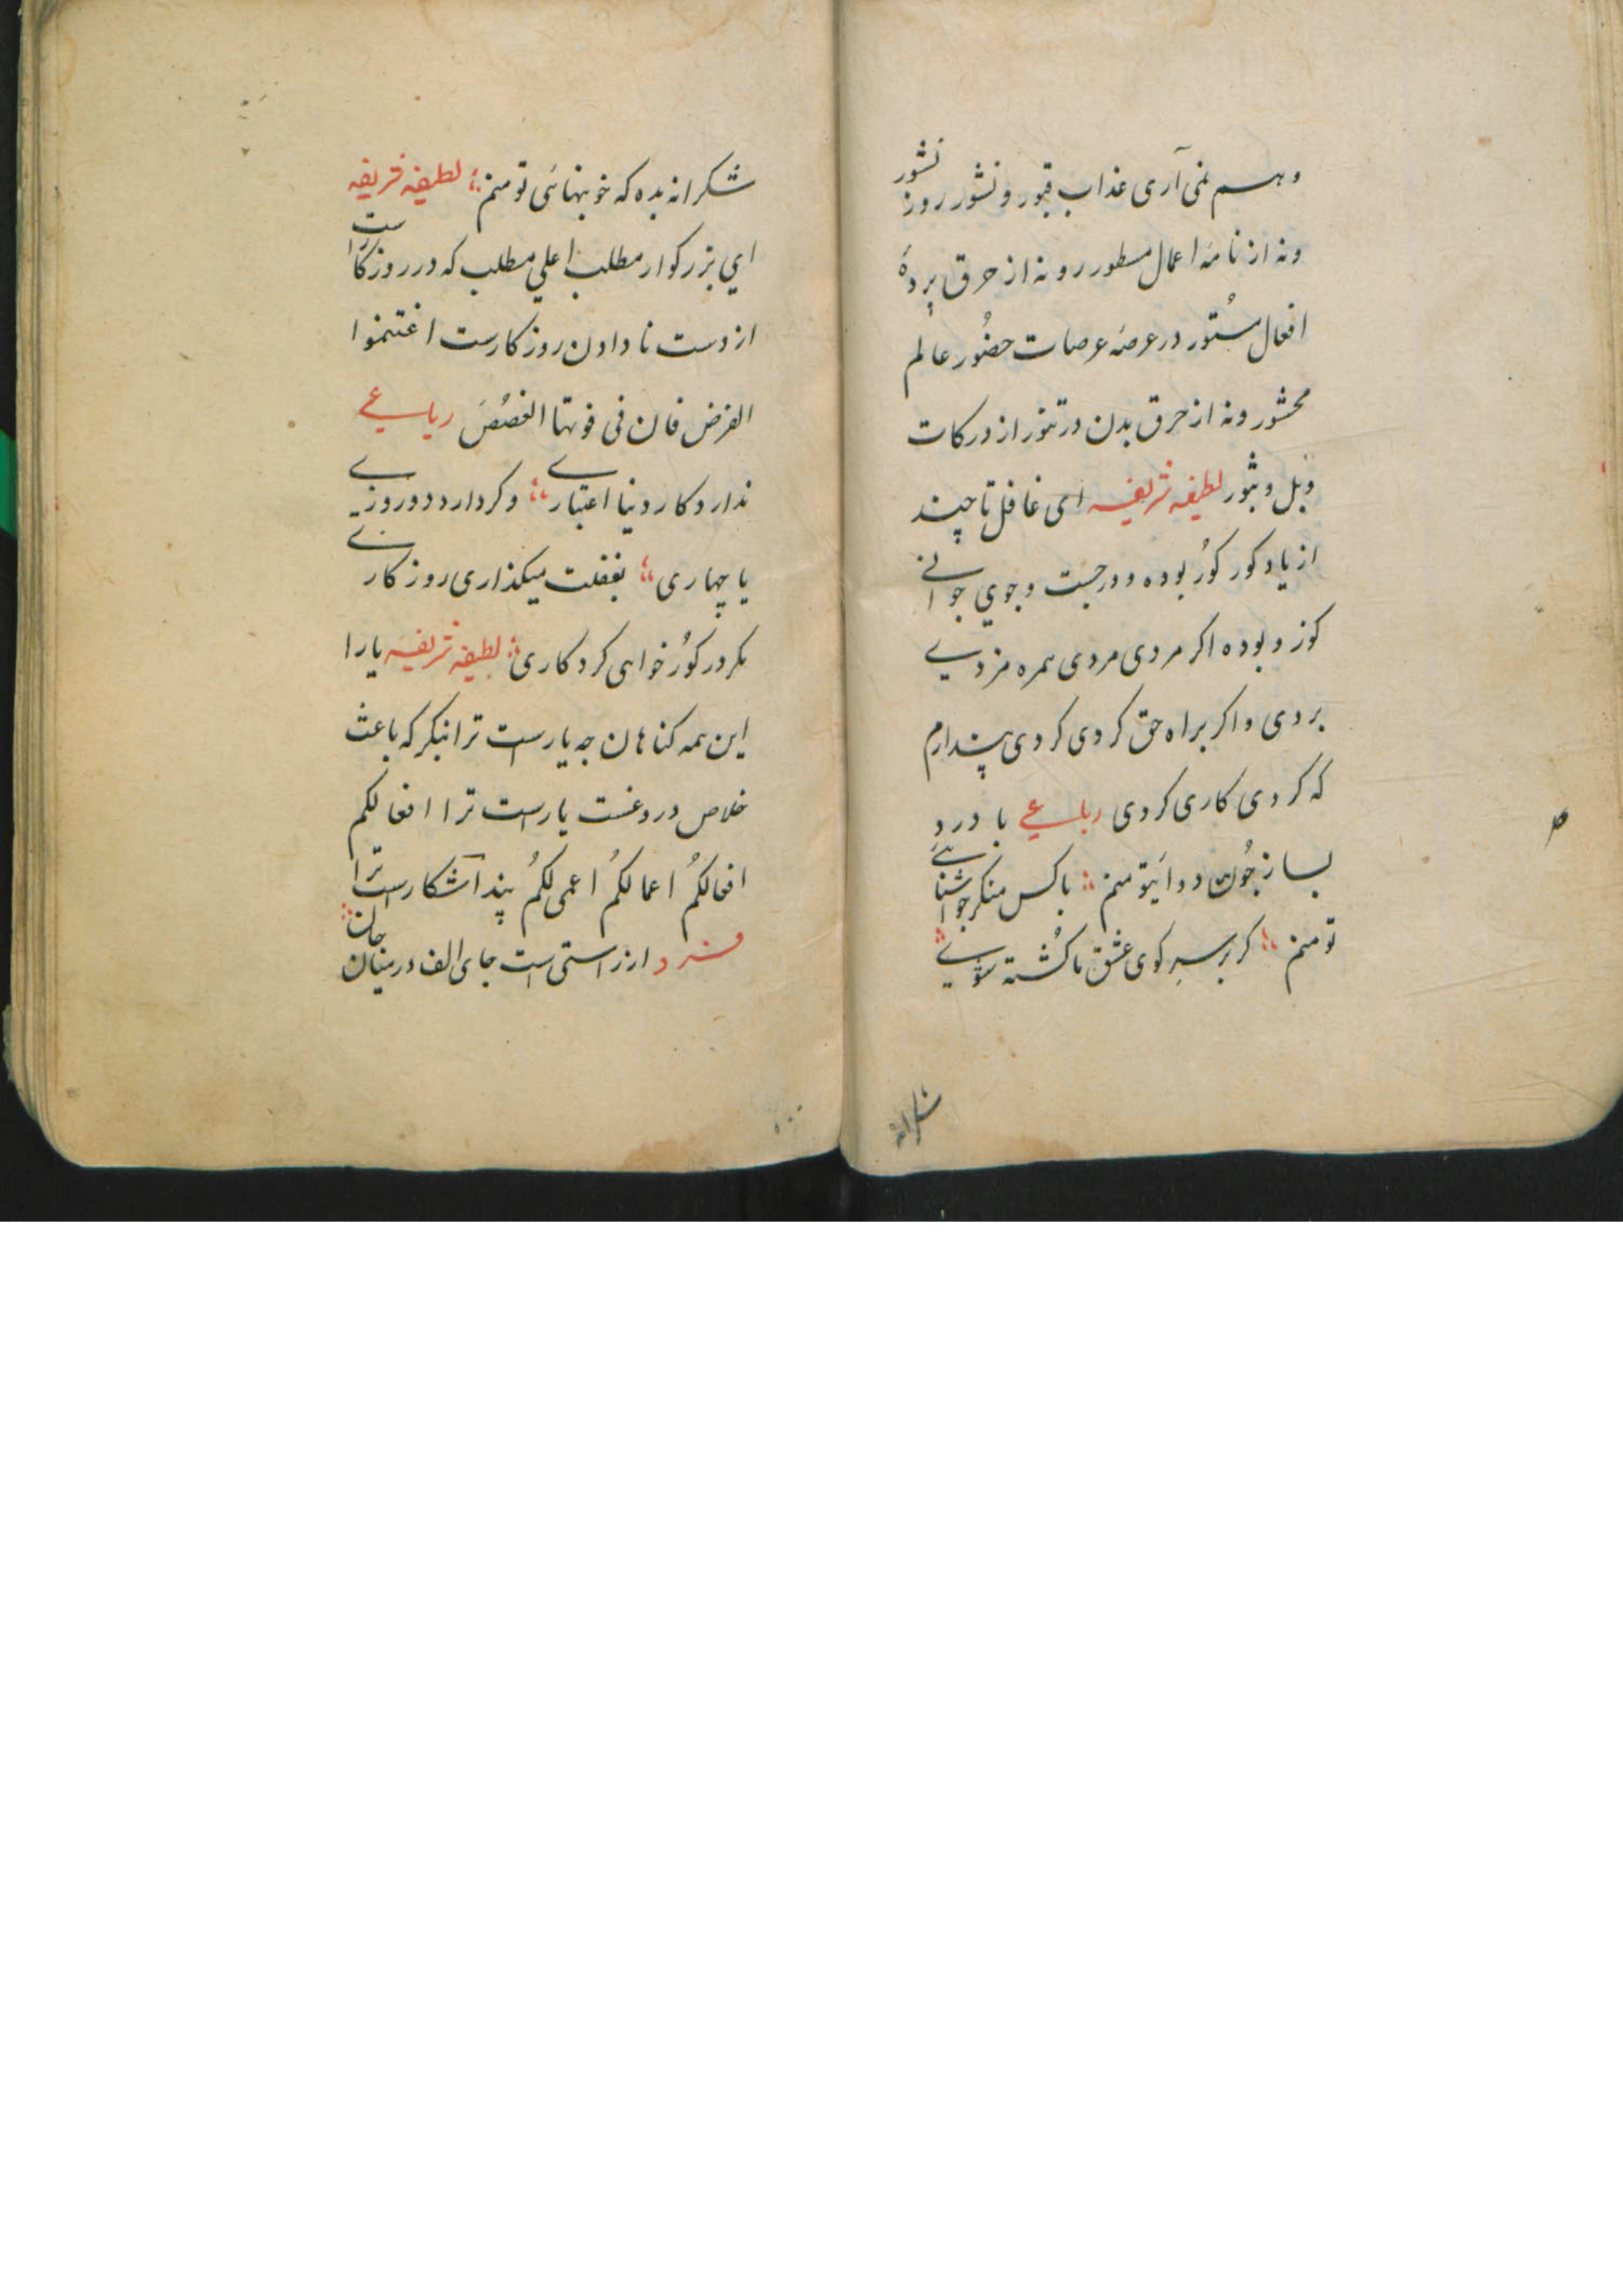 وهم نمی آری عذاب قبور و نشور روز نشور
ونه از نامهٔ اعمال مسطور رو نه از حرق پردهٔ
افعال مستُور در عرصهٔ عرصات حضُور عالم
محشور ونه از حرق بدن در تنور از درکات
وَبل وثبُور لطیفه شریفه ای غافل تا چند
از یاد کور کوُر بوده و در جست وجوي جوانے
کوز و بوده اکر مردی مردی همره مزدے
بردی واکر براه حق کردی کردی پندارم
که کردی کاری کردی رباعے با دردِ
بساز چُون دوائی تو منم؛ باکس منکر چو آشنائے
تو منم؛ کر بر سرِ کوی عشق ما کُشته شوے
شکرانه
شکرانه بده که خونبهائی تو منم؛ لطیفه شریفه
اي بزرکوار مطلب اعلي مطلب که در روزکارست
از دست نا دادن روز کارست اغتنموا
الفرض فان فی فوتها الغصُصَ رباعے
ندارد کار دنیا اعتبارے؛ وکردارد دو روزے
یا چهاری؛ بغفلت میکذاری روز کارے
مکر در کوُر خواهی کرد کاری؛ لطیفه شریفه یارا
این همه کناهان چه یارست ترا بنکر که باعث
خلاص دروغست یارست ترا افعالکم
افعالکُم اعمالکُم اعمی لکُم پند آشکارست ترا
فرد ارزراستی است جای الف در میان جان